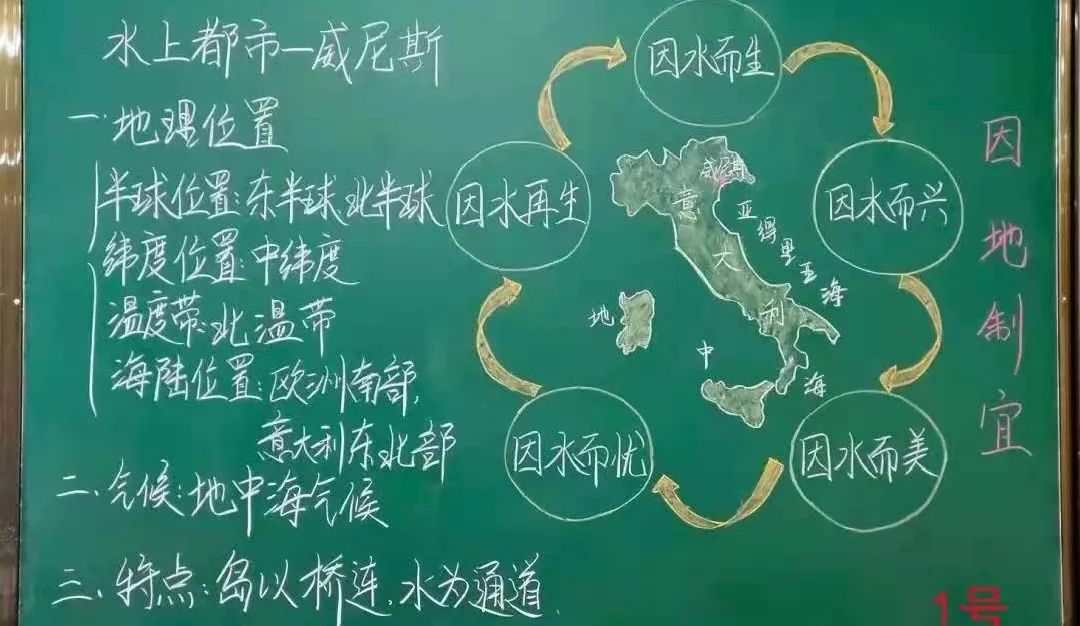 水上都市—威尼斯
一.地理位置
半球位置:东半球北半球
纬度位置:中纬度
温度带:北温带
海陆位置:欧洲南部,
意大利东北部
二.气候:地中海气候
三.特点:岛以桥连,水为通道.
因水而生
因水而兴
因水而美
因水而忧
因水再生
威尼斯
意大利
亚得里亚海
地中海
因地制宜
1号